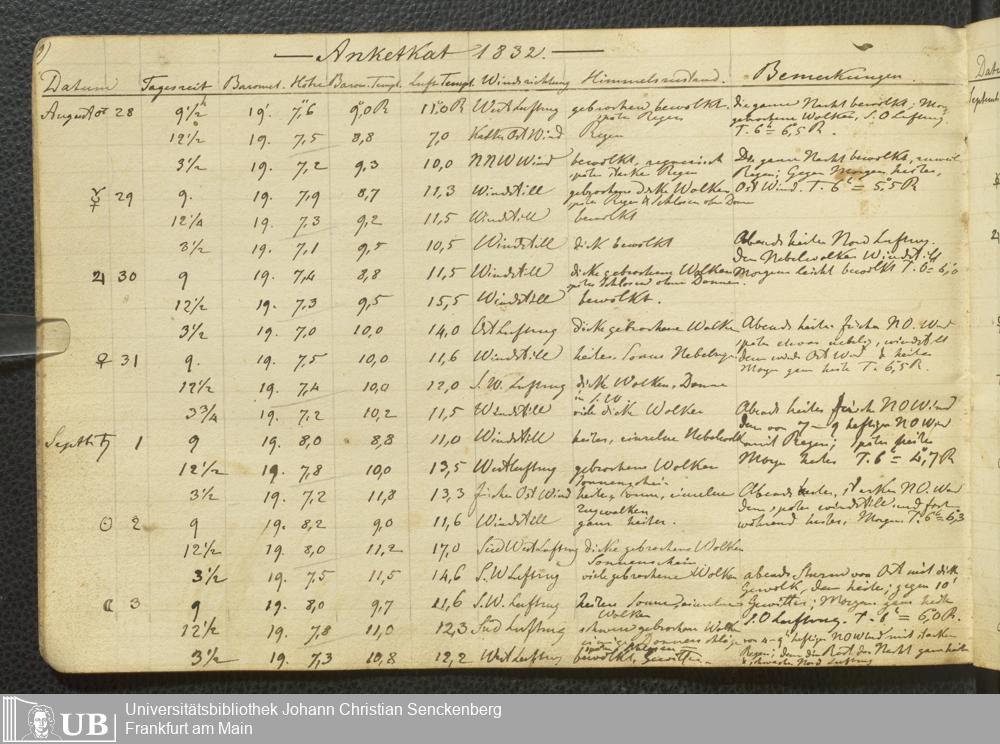 — Anketkat 1832. —
Datum Tagesreit Baromet. Höhe Barom. Templ. Luft Templ. Windsrichtung Himmelszustand. Bemerkungen.
August ♂ 28 9½ʰ 19' 7,"6 9,°0 R 11,°0 R West Luftug gebrochen bewolkt, die ganze Nacht bewolkt, Morg
später Regen gebrochene Wolken, S.O Luftug,
12½ 19. 7,5 8,8 7,0 Kalter Ost Wind Regen T. 6ᵗ = 6,5 R.
3½ 19. 7,2 9,3 10,0 NNW Wind bewolkt, Die ganze Nacht bewolkt,
später starke Regen Regen; Gegen Morgen heiter,
☿ 29 9. 19. 7,9 8,7 11,3 Windstill gebrochene dicke Wolken Ost Wind. T. 6ᵗ = 5,5 R
später Regen & Schlosen ohne Donner
12¼ 19. 7,3 9,2 11,5 Windstill bewolkt
3½ 19. 7,1 9,5 10,5 Windstill dick bewolkt Abends heiter Nord Luftug.
den Nebelwolken Windstill
♃ 30 9 19. 7,4 8,8 11,5 Windstill dicke gebrochene Wolken Morgens leicht bewolkt T. 6ᵗ = 6,0
später Schlosen ohne Donner.
12½ 19. 7,3 9,5 15,5 Windstill bewolkt.
3½ 19. 7,0 10,0 14,0 Ost Luftug dicke gebrochene Wolken Abends heiter frischer NO. Wind
später etwas neblig, windstill
♀ 31 9. 19. 7,5 10,0 11,6 Windstill heiter, Sonne dann wieder Ost Wind & heiter
Morgen ganz heiter T. 6,5 R.
12½ 19. 7,4 10,0 12,0 S. W. Luftug dicke Wolken, Donner
in S.W
3¾ 19. 7,2 10,2 11,5 Windstill viele dicke Wolken Abends heiter frischer NO Wind
dann von 7–9 heftiger NO Wind
Septb ♄ 1 9 19. 8,0 8,8 11,0 Windstill heiter, einzelne Nebelwolk mit Regen; später heiter
12½ 19. 7,8 10,0 13,5 West Luftug gebrochene Wolken Morgen heiter T. 6ᵗ = 4,7 R
Sonnenschein
3½ 19. 7,2 11,8 13,3 frischer Ost Wind heiter, Sonne, einzelne Abends heiter, starker NO. Wind
Zugwolken dann, später windstill und fort-
☉ 2 9 19. 8,2 9,0 11,6 Windstill ganz heiter. während heiter, Morgen T. 6ᵗ = 6,3
12½ 19. 8,0 11,2 17,0 Süd West Luftug dicke gebrochene Wolken
Sonnenschein
3½ 19. 7,5 11,5 14,6 S. W Luftug viele gebrochene Wolken abends Sturm von Ost mit dick
gewolk, dann heiter; gegen 10'
☾ 3 9 19. 8,0 9,7 11,6 S.W. Luftug heiter Sonne einzelne Gewitter; Morgens ganz heiter
Wolken S.O Luftung. T. 6ᵗ = 6,0 R.
12½ 19. 7,8 11,0 12,3 Süd Luftug schwere gebrochene Wolk
einzige Donnerschläge von 4–9ᵗ heftiger NO Wind mit starken
später Schlosen Regen; dann den Rest der Nacht ganz heiter
3½ 19. 7,3 10,8 12,2 West Luftug bewolkt, Gewitter & schwacher Nord Luftug
Universitätsbibliothek Johann Christian Senckenberg
UB Frankfurt am Main